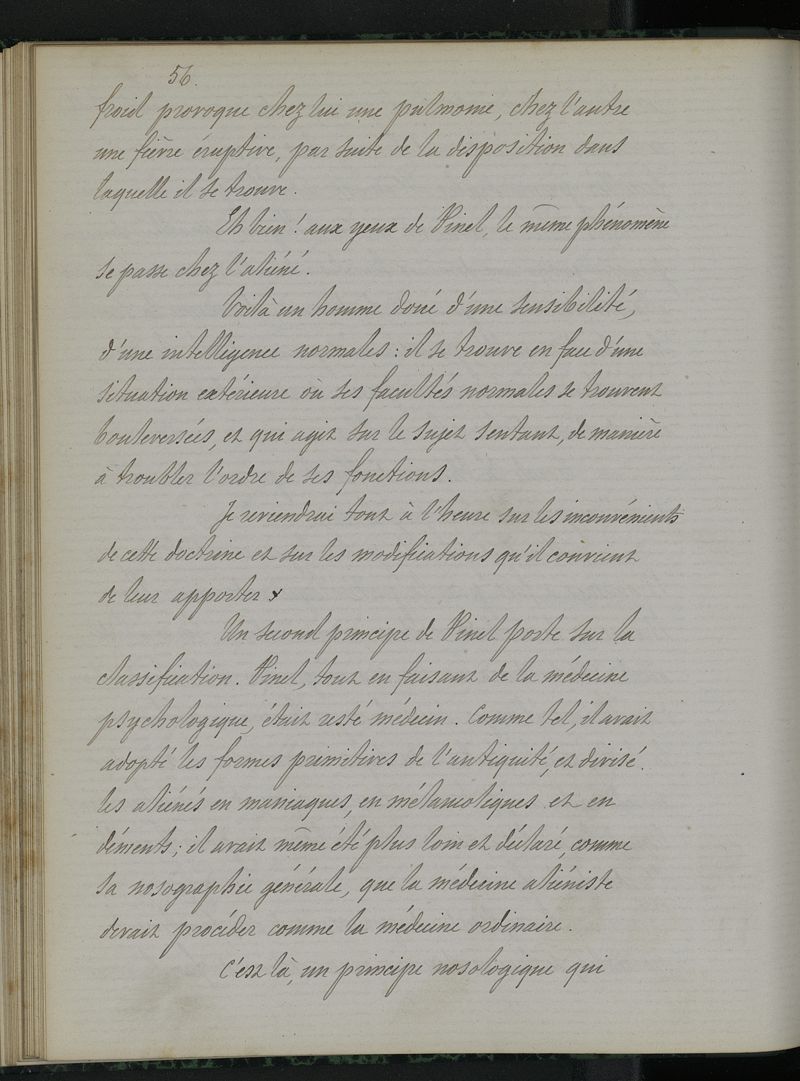 56.
froid provoque chez lui une pulmonie, chez l'autre
une fièvre éruptive, par suite de la disposition dans
laquelle il se trouve.
Eh bien ! aux yeux de Pinel, le même phénomène
se passe chez l'aliéné.
Voilà un homme doué d'une sensibilité,
d'une intelligence normales : il se trouve en face d'une
situation extérieure où ses facultés normales se trouvent
bouleversées, et qui agit sur le sujet sentant, de manière
à troubler l'ordre de ses fonctions.
Je reviendrai tout à l'heure sur les inconvénients
de cette doctrine et sur les modifications qu'il convient
de leur apporter x
Un second principe de Pinel porte sur la
classification. Pinel, tout en faisant de la médecine
psychologique, était resté médecin. Comme tel, il avait
adopté les formes primitives de l'antiquité, et divisé
les aliénés en maniaques, en mélancoliques et en
déments ; il avait même été plus loin et déclaré, comme
sa nosographie générale, que la médecine aliéniste
devait procéder comme la médecine ordinaire.
C'est là, un principe nosologique qui